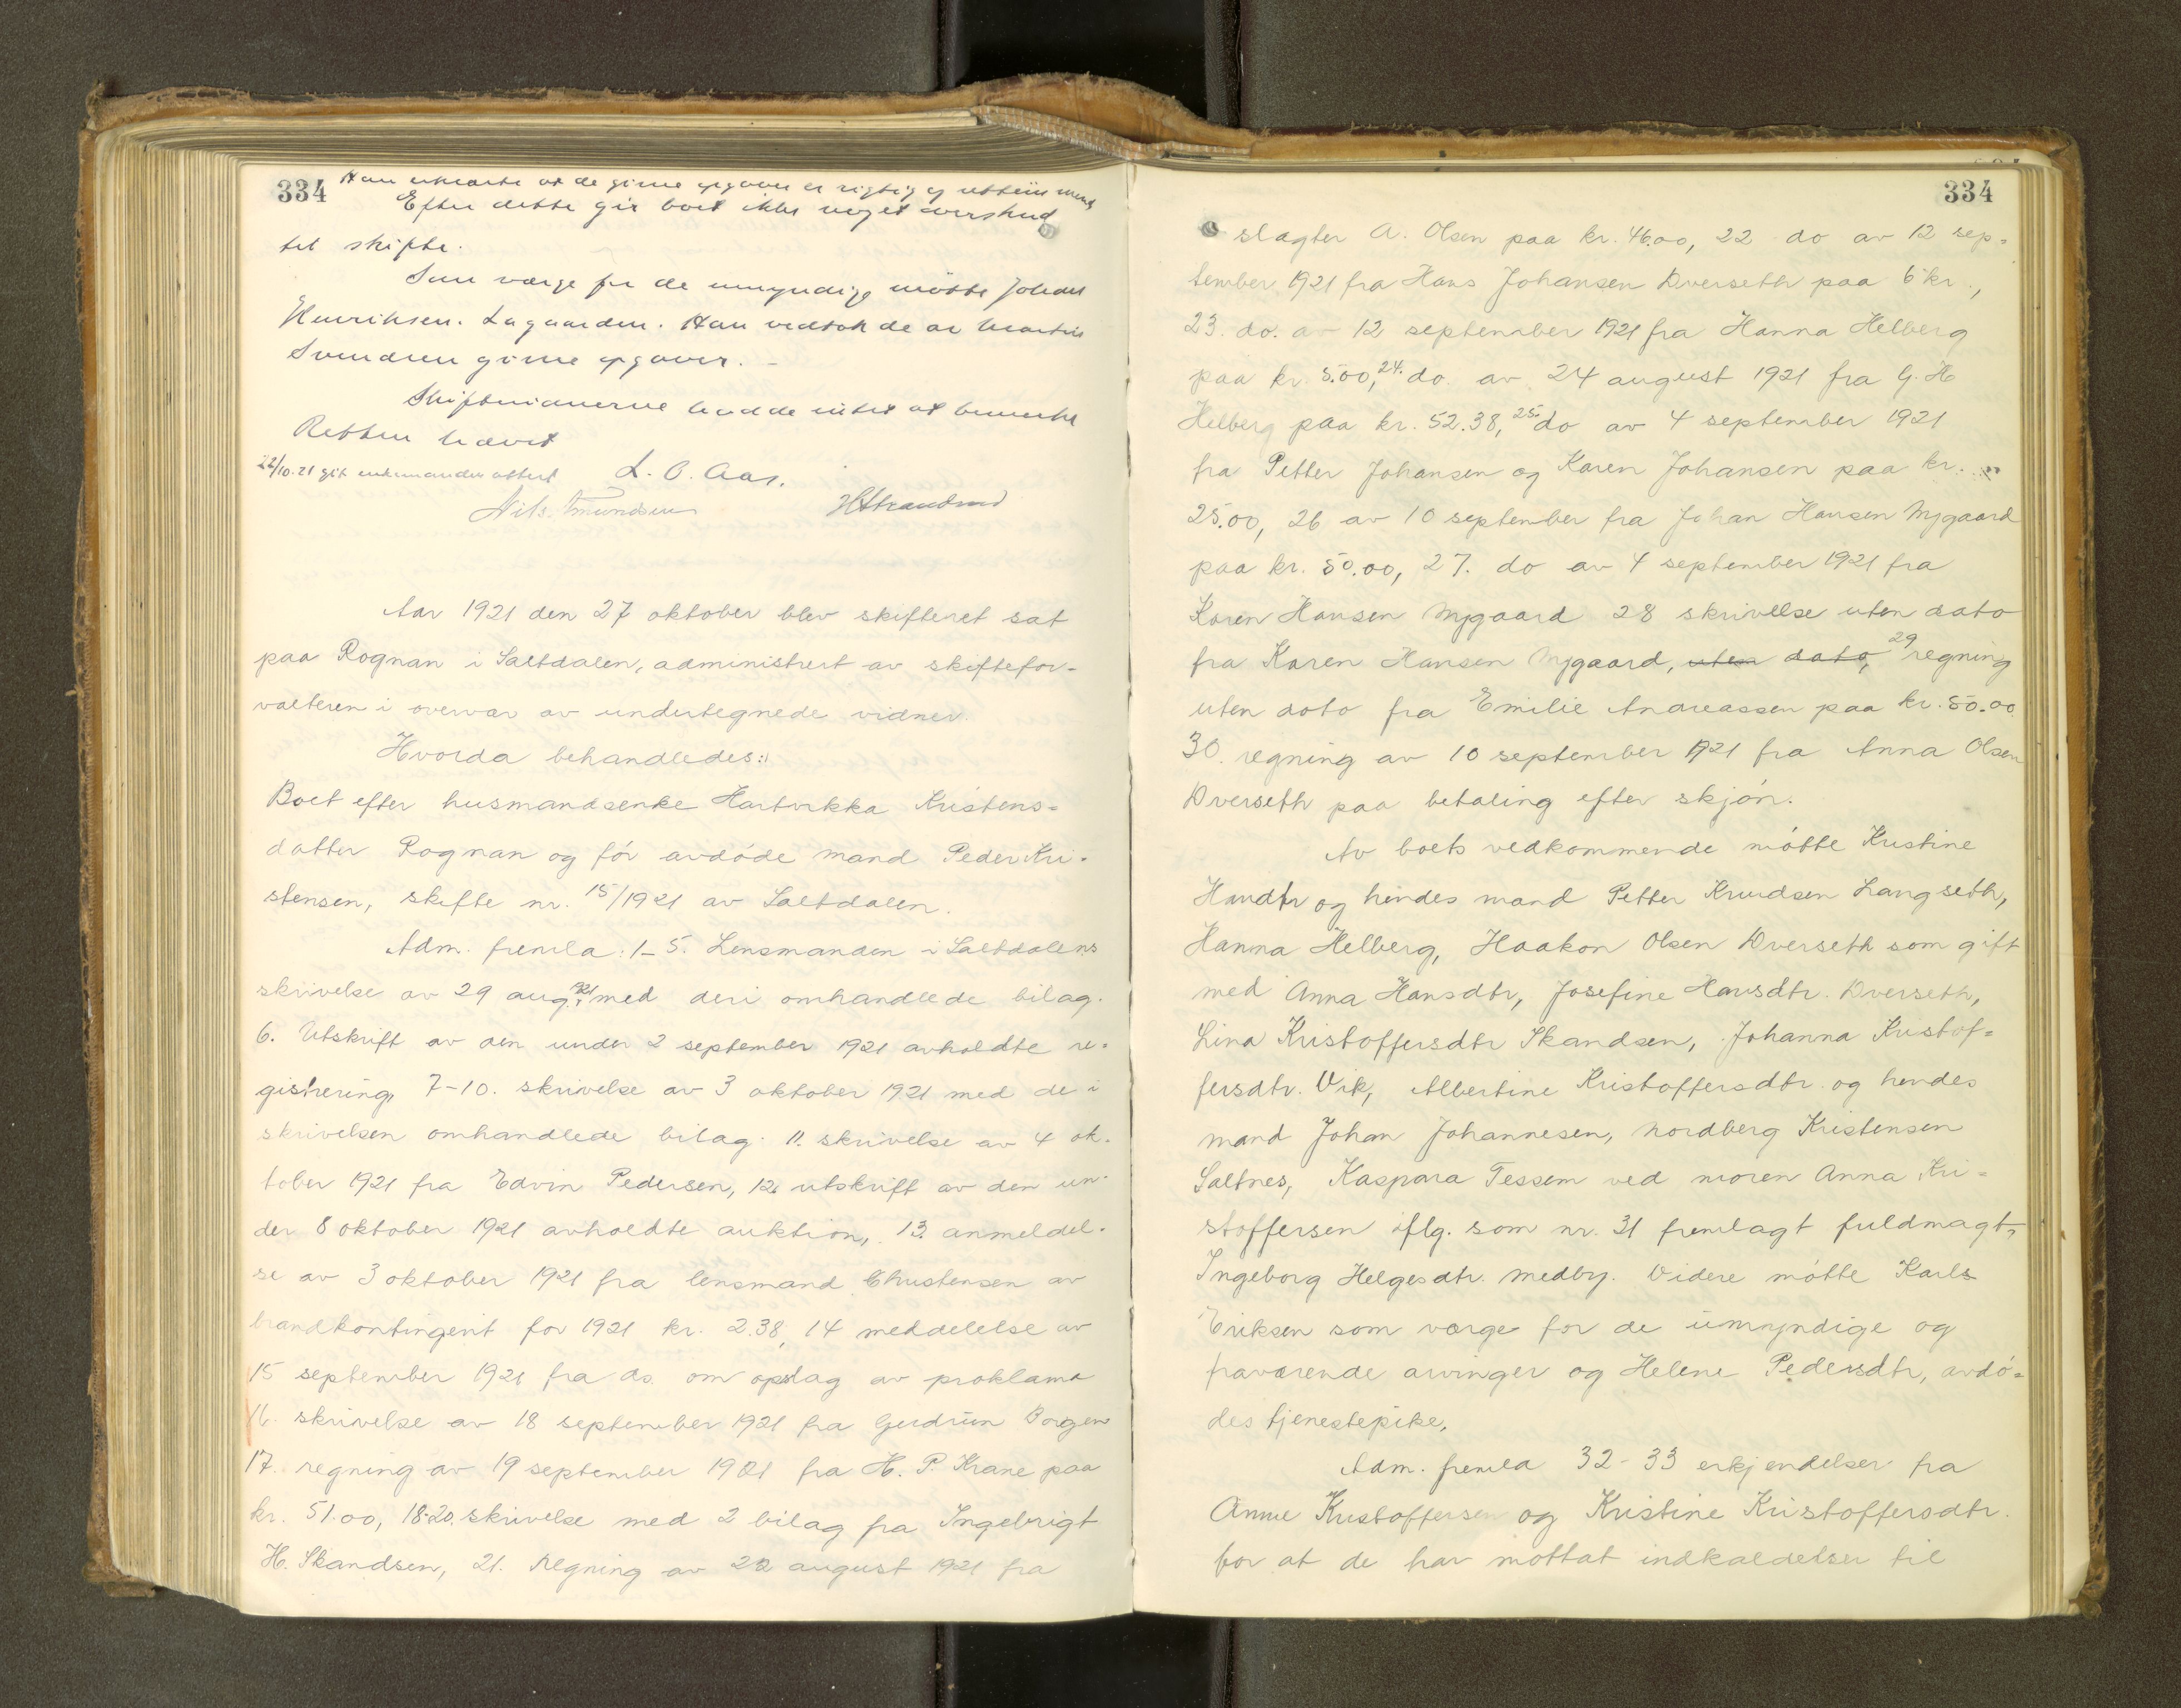 334
Han erklærte at de givne opgaver er rigtig og
Efter dette gir boet ikke noget overskud
til skifte.
Som værge for de umyndige møtte Johan
Henriksen. Lagaarden. Han vedtok de av Martin
Svendsen givne opgaver. -
Skiftevidnerne hadde intet at bemerke
Retten hævet
22/10.21 git enkemanden attest L. O. Aas.
Nils Amundsen H Strandmd
Aar 1921 den 27 oktober blev skifteret sat
paa Rognan i Saltdalen, administrert av skiftefor-
valteren i overvær av undertegnede vidner.
Hvorda behandledes:
Boet efter husmandsenke Hartvikka Kristens=
datter Rognan og før avdøde mand Peder Kri-
stensen, skifte nr. 15/1921 av Saltdalen.
Adm. fremla: 1-5. Lensmanden i Saltdalens
skrivelse av 29 aug. 21 med deri omhandlede bilag.
6. Utskrift av den under 2 september 1921 avholdte re-
gistrering, 7-10. skrivelse av 3 oktober 1921 med de i
skrivelsen omhandlede bilag. 11. skrivelse av 4 ok-
tober 1921 fra Edvin Pedersen, 12. utskrift av den un-
der 8 oktober 1921 avholdte auktion, 13. anmeldel-
se av 3 oktober 1921 fra lensmand Christensen av
brandkontingent for 1921 kr. 2.38, 14 meddelelse av
15 september 1921 fra do. om opslag av proklama
16. skrivelse av 18 september 1921 fra Gudrun Borgen
17. regning av 19 september 1921 fra H. P. Krane paa
kr. 51.00, 18-20. skrivelse med 2 bilag fra Ingebrigt
H. Skandsen, 21. Regning av 22 august 1921 fra
334
slagter A. Olsen paa kr. 46.00, 22 do av 12 sep-
tember 1921 fra Hans Johansen Dverseth paa 6 kr.,
23. do. av 12 september 1921 fra Hanna Helberg
paa kr. 5.00, 24. do. av 24 august 1921 fra G. H
Helberg paa kr. 52.38, 25. do av 4 september 1921
fra Petter Johansen og Karen Johansen paa kr.
25.00, 26 av 10 september fra Johan Hansen Nygaard
paa kr. 50.00, 27. do av 4 september 1921 fra
Karen Hansen Nygaard 28 skrivelse uten dato
fra Karen Hansen Nygaard, uten dato, 29 regning
uten dato fra Emilie Andreassen paa kr. 50.00
30. regning av 10 september 1921 fra Anna Olsen
Dverseth paa betaling efter skjøn.
Av boets vedkommende møtte Kristine
Hansdtr og hendes mand Petter Knudsen Langseth,
Hanna Helberg, Haakon Olsen Dverseth som gift
med Anna Hansdtr, Josefine Hansdtr. Dverseth,
Lina Kristoffersdtr Skandsen, Johanna Kristof=
fersdtr. Vik, Albertine Kristoffersdtr. og hendes
mand Johan Johannesen, Nordberg Kristensen
Saltnes, Kaspara Tessem ved moren Anna Kri=
stoffersen iflg. som nr. 31 fremlagt fuldmagt,
Ingeborg Helgesdtr. Medby. Videre møtte Karls
Eriksen som værge for de umyndige og
fraværende arvinger og Helene Pedersdtr, avdø=
des tjenestepike.
Adm. fremla 32-33 erkjendelser fra
Anne Kristoffersen og Kristine Kristoffersdtr.
for at de har mottat indkaldelser til